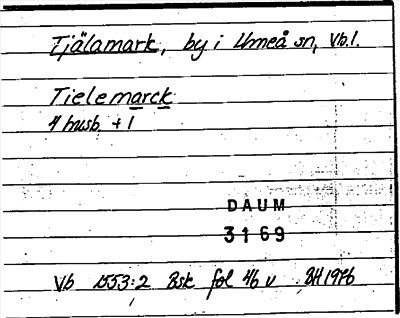 Tjälamark, by i Umeå sn, Vb.l.
Tielemarck
4 husb. + 1
DAUM
3169
Vb 1553:2 Bsk fol 46 v BH1976